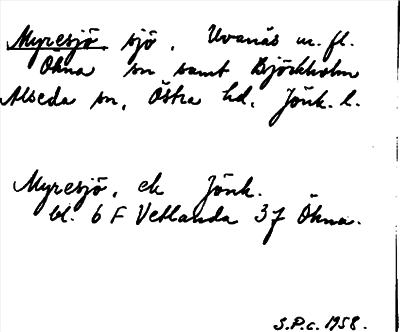 Myresjö, sjö, Uvanäs m. fl.
Ökna sn samt Björkholm
Alseda sn, Östra hd, Jönk. l.
Myresjö, ek Jönk.
bl. 6 F Vetlanda 3f Ökna.
S.P.c. 1958.